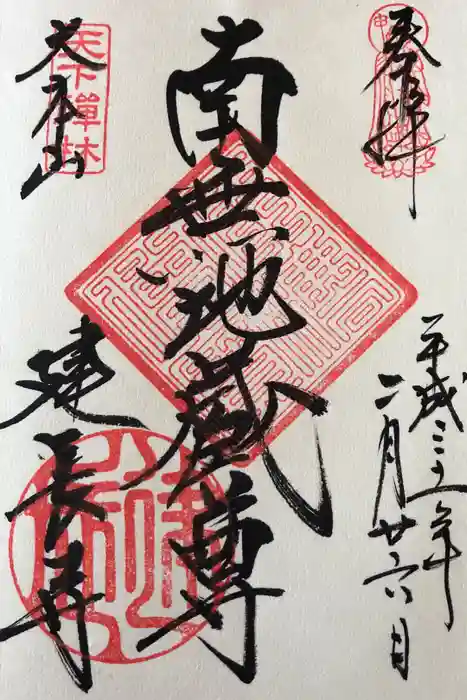 奉拝
平成三十一年
二月廿六日
南無地蔵尊
大本山
天下禪林
建長寺